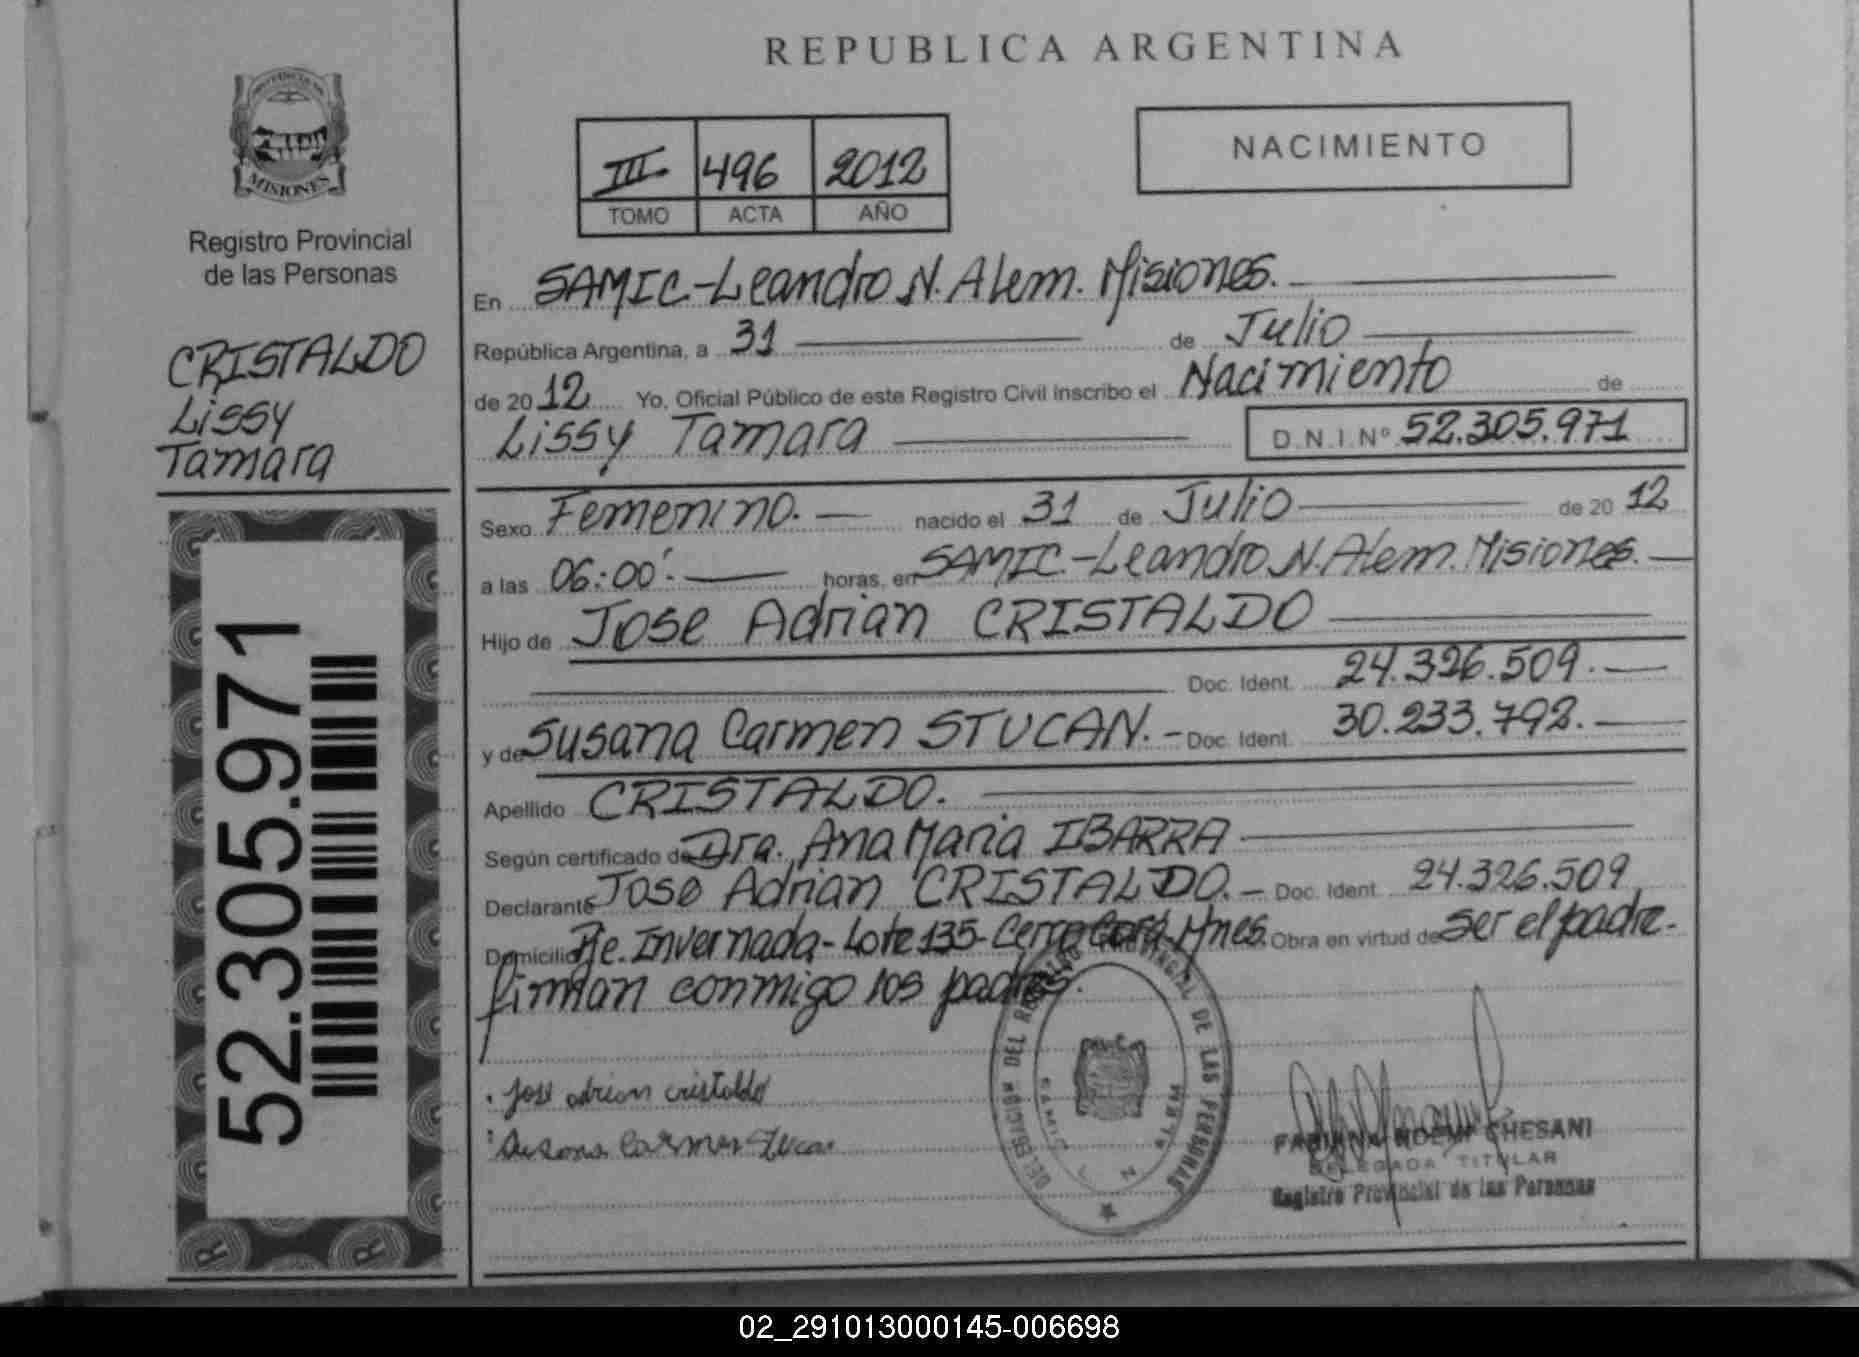 REPUBLICA ARGENTINA
PROVINCIA DE
MISIONES
Registro Provincial
de las Personas
CRISTALDO
Lissy
Tamara
52.305.971
III 496 2012
TOMO ACTA AÑO
NACIMIENTO
En SAMIC-Leandro N. Alem. Misiones.
República Argentina, a 31 de Julio
de 2012 Yo, Oficial Público de este Registro Civil Inscribo el Nacimiento de
Lissy Tamara D.N.I.Nº 52.305.971
Sexo Femenino. nacido el 31 de Julio de 2012
a las 06:00'. horas, en SAMIC.-Leandro N. Alem. Misiones.
Hijo de Jose Adrian CRISTALDO
Doc. Ident. 24.326.509.
y de Susana Carmen STUCAN. Doc. Ident. 30.233.792.
Apellido CRISTALDO.
Según certificado de Dra. Ana Maria IBARRA
Declarante Jose Adrian CRISTALDO. Doc. Ident. 24.326.509
Domicilio Pje. Invernada-Lote 135-Cerro Corá-Mnes. Obra en virtud de ser el padre.
firman conmigo los padres.
Jose adrian cristaldo
Susana Carmen Stucan
DELEGACION DEL REGISTRO PROVINCIAL DE LAS PERSONAS
SAMIC L. N. ALEM
FABIANA NOEMI CHESANI
DELEGADA TITULAR
Registro Provincial de las Personas
02_291013000145-006698